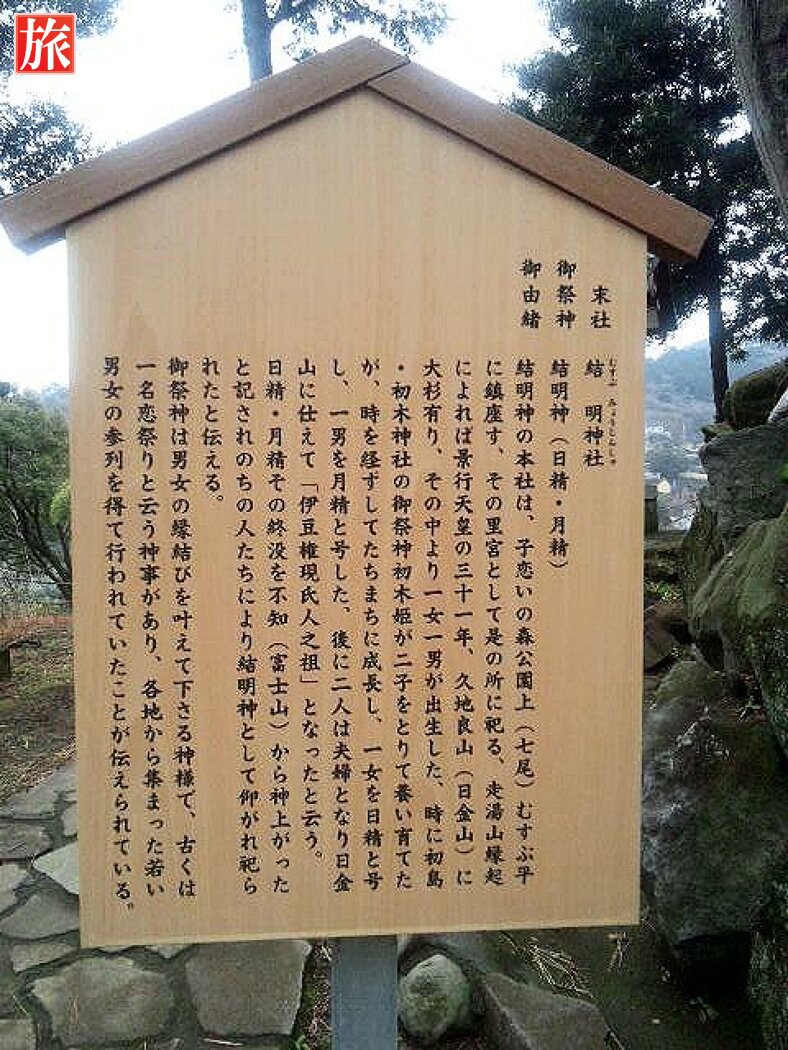 旅
末社 結 明神社
むすぶ みょうじんしゃ
御祭神 結明神(日精・月精)
御由緒 結明神の本社は、子恋いの森公園上(七尾)むすぶ平
に鎮座す、その里宮として是の所に祀る、走湯山縁起
によれば景行天皇の三十一年、久地良山(日金山)に
大杉有り、その中より一女一男が出生した、時に初島
・初木神社の御祭神初木姫が二子をとりて養い育てた
が、時を経ずしてたちまちに成長し、一女を日精と号
し、一男を月精と号した、後に二人は夫婦となり日金
山に仕えて「伊豆権現氏人之祖」となったと云う。
日精・月精その終没を不知(富士山)から神上がった
と記されのちの人たちにより結明神として仰がれ祀ら
れたと伝える。
御祭神は男女の縁結びを叶えて下さる神様で、古くは
一名恋祭りと云う神事があり、各地から集まった若い
男女の参列を得て行われていたことが伝えられている。